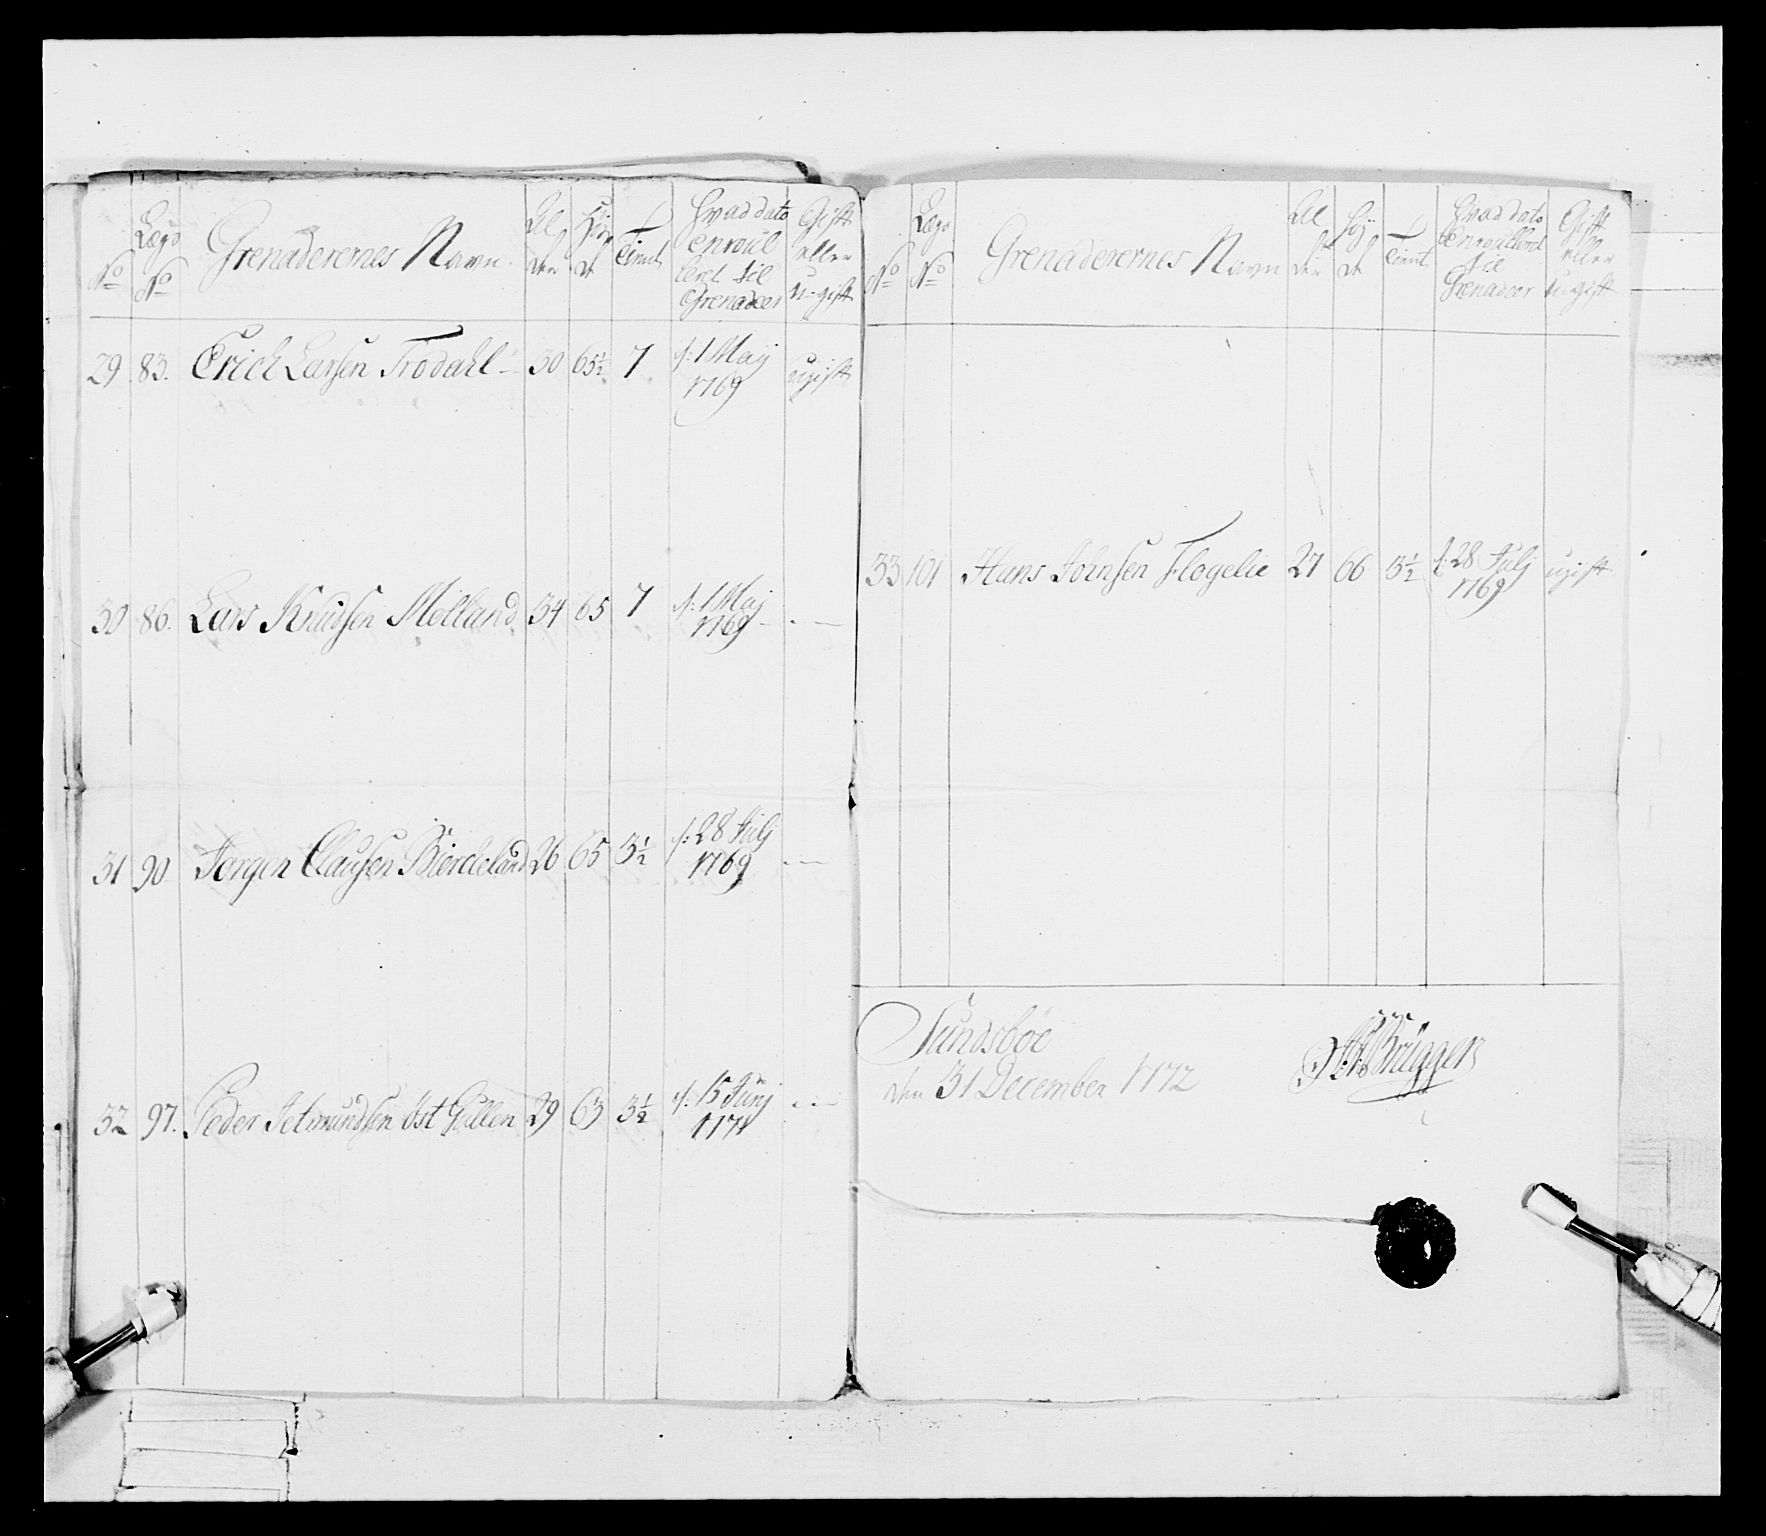 No Lægs No Grenaderernes Navn Alder Høyde Tient Hvad dato enroulleret til Grenadeer Gift eller u-gift
29. 83. Erich Larsen Trodahl 30 65½ 7 d: 1 Maij 1769 ugift
30 86. Lars Knudsen Melland 34 65 7 d: 1 Maj 1769 - . -
31 90 Jørgen Clausen Bierdeland 26 65 3½ d: 28 Julj 1769 - . -
32 97. Peder Jetmundsen Øst Gullen 29 63 3½ d: 15 Junj - . -
No Lægs No Grenaderernes Navn Alder Høyde Tient Hvad dato Enroulleret til Grenadeer Gift eller u-gift
33 101 Hans Joensen Flogelie 27 66 3½ d: 28 Julj 1769 ugift
Sundsböe
den 31 December 1772
Brügger